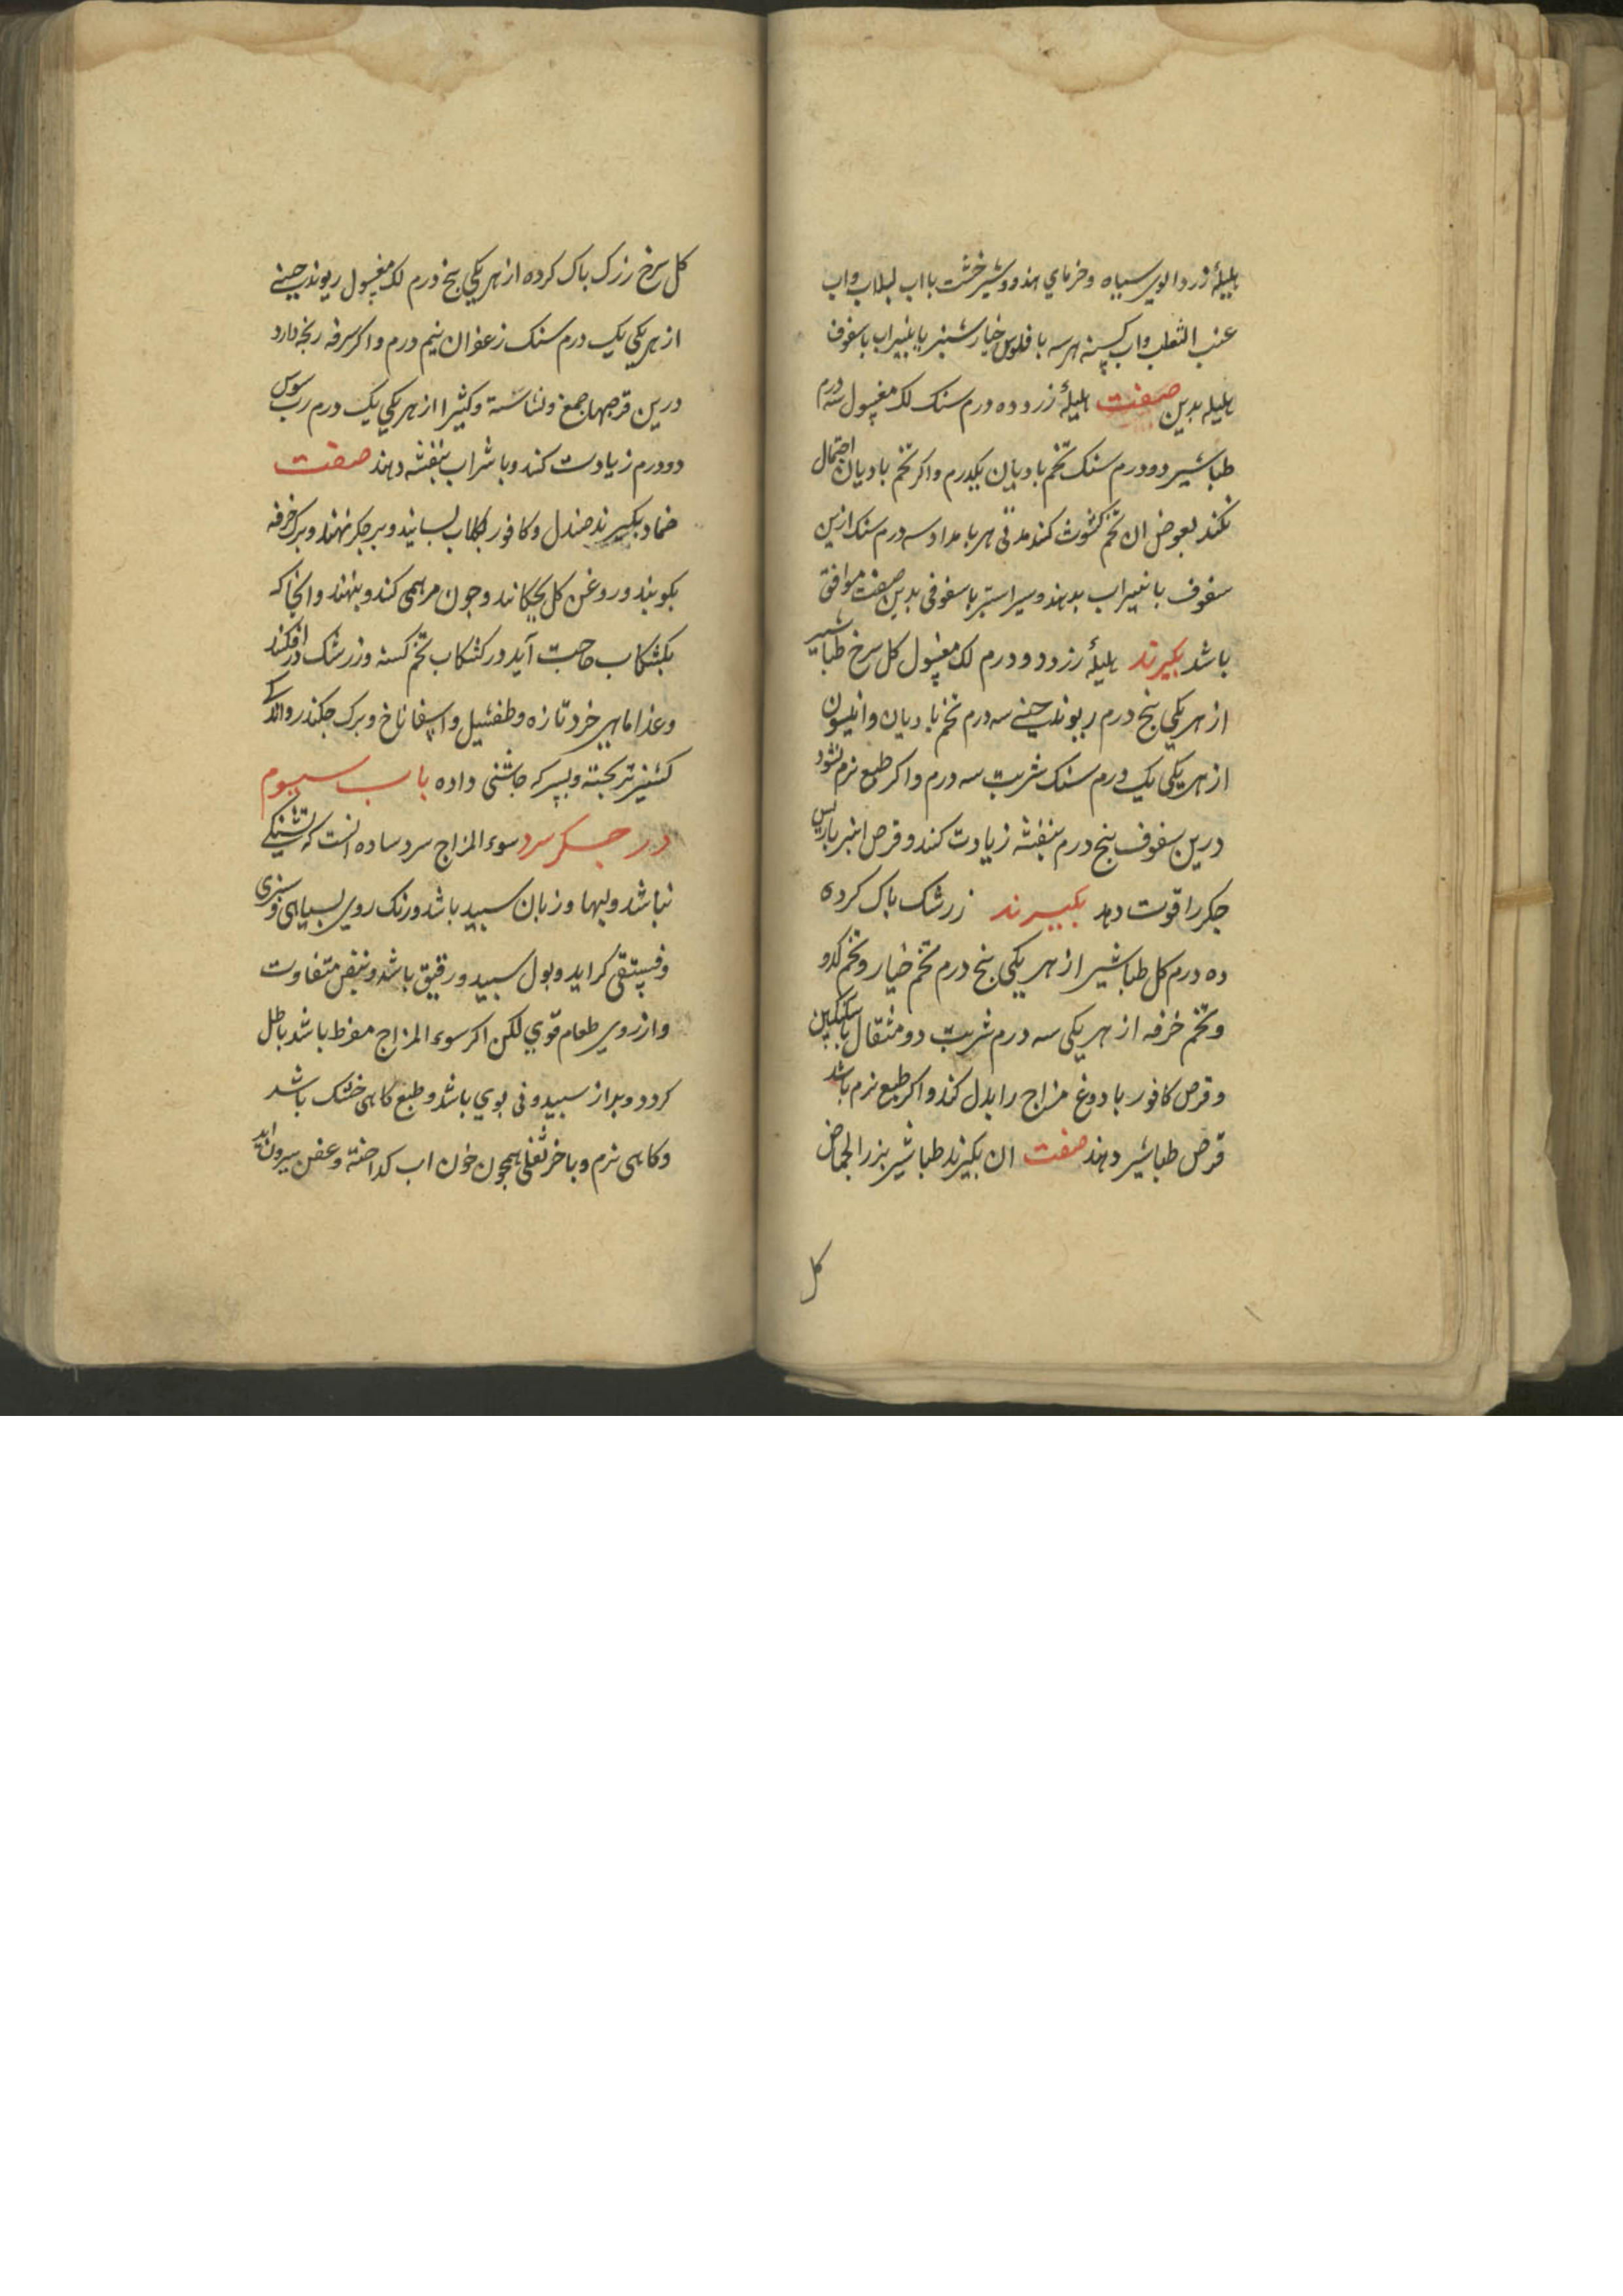 هلیلۀ زرد والوی سیاه وخرمای هندو وشیرخشت بااب لبلاب واب
عنب الثعلب واب کسنه هرسه با فلوس خیارشنبر یا بنیراب باسفوف
هلیله بدین صفت هلیلۀ زرد ده درم سنک لک مغسول سه درم
طباشیر دودرم سنک تخم بادیان یکدرم واکر تخم بادیان احتمال
نکند بعوض ان تخم کشوث کنند مدتی هر بامداد سه درم سنک ازین
سفوف بابنیراب بدهند وسیراستبر با سفوفی بدین صفت موافق
باشد بکیرند هلیلۀ زرد دو درم لک مغسول کل سرخ طباشیر
از هر یکی بنج درم ریوند جینی سه درم تخم بادیان وانیسون
از هر یکی یک درم سنک شربت سه درم واکر طبع نرم نشود
درین سفوف بنج درم بنفشه زیادت کنند وقرص انبرباریس
جکر را قوت دهد بکیرند زرشک باک کرده
ده درم کل طباشیر از هر یکی بنج درم تخم خیار وتخم کدو
وتخم خرفه از هر یکی سه درم شربت دو مثقال باسکنکبین
وقرص کافور با دوغ مزاج را بدل کند واکر طبع نرم باشد
قرص طباشیر دهند صفت ان بکیرند طباشیر بزر الحماض
کل
کل سرخ زرک باک کرده از هر یکی بنج درم لک مغسول ریوند جینی
از هر یکی یک درم سنک زعفران نیم درم واکر سرفه رنجه دارد
درین قرصها صمغ ونشاسته وکثیرا از هر یکی یک درم رب سوس
دودرم زیادت کنند وبا شراب بنفشه دهند صفت
ضماد بکیرند صندل وکافور بکلاب بسایند وبر جکر نهند وبرک خرفه
بکوبند وروغن کل بجکانند وجون مرهمی کنند وبنهند وانجا که
بکشکاب حاجت آید در کشکاب تخم کسنه وزرشک درافکنند
وغذا ماهی خرد تازه وطفشیل واسپفاناخ وبرک جکندر واندکی
کشنیز تر بخته وبسرکه جاشنی داده باب سیوم
در جکر سرد سوء المزاج سرد ساده انست که تشنکی
نباشد ولبها وزبان سبید باشد ورنک روی بسیاهی وسبزی
وفستقی کراید وبول سبید ورقیق باشد ونبض متفاوت
وارزوی طعام قوی لکن اکر سوء المزاج مفرط باشد باطل
کردد وبراز سبید وبی بوی باشد وطبع کاهی خشک باشد
وکاهی نرم وباخر ثفلی همجون خون اب کداخته وعفن بیرون اید